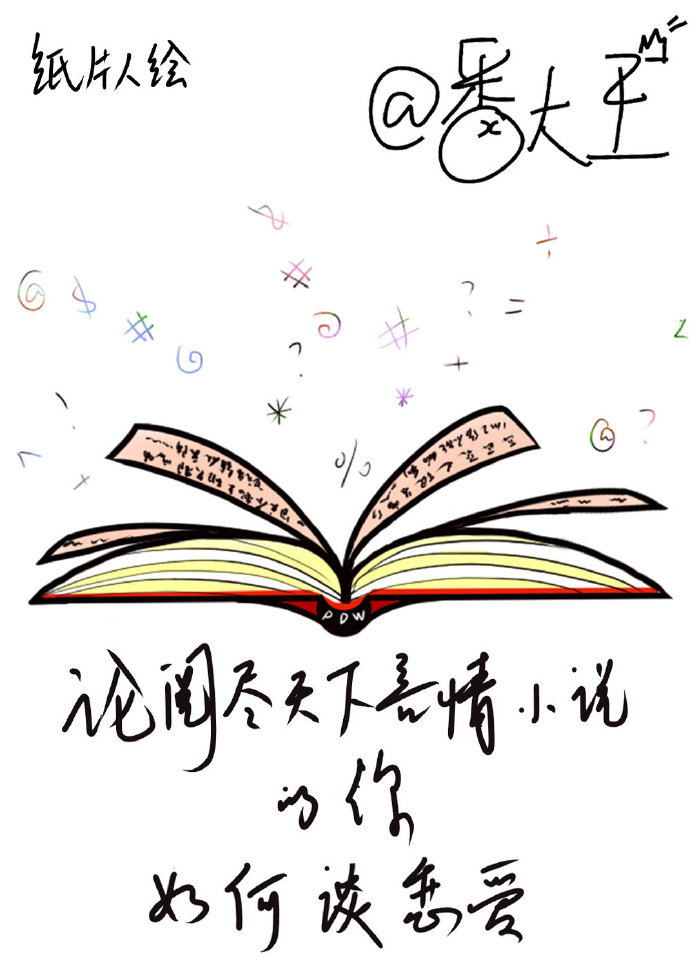 纸片人绘
@番大王
@ $ # ? = ÷
? # + * * %
@ ?
PDW
论阅尽天下言情小说
的你
如何谈恋爱